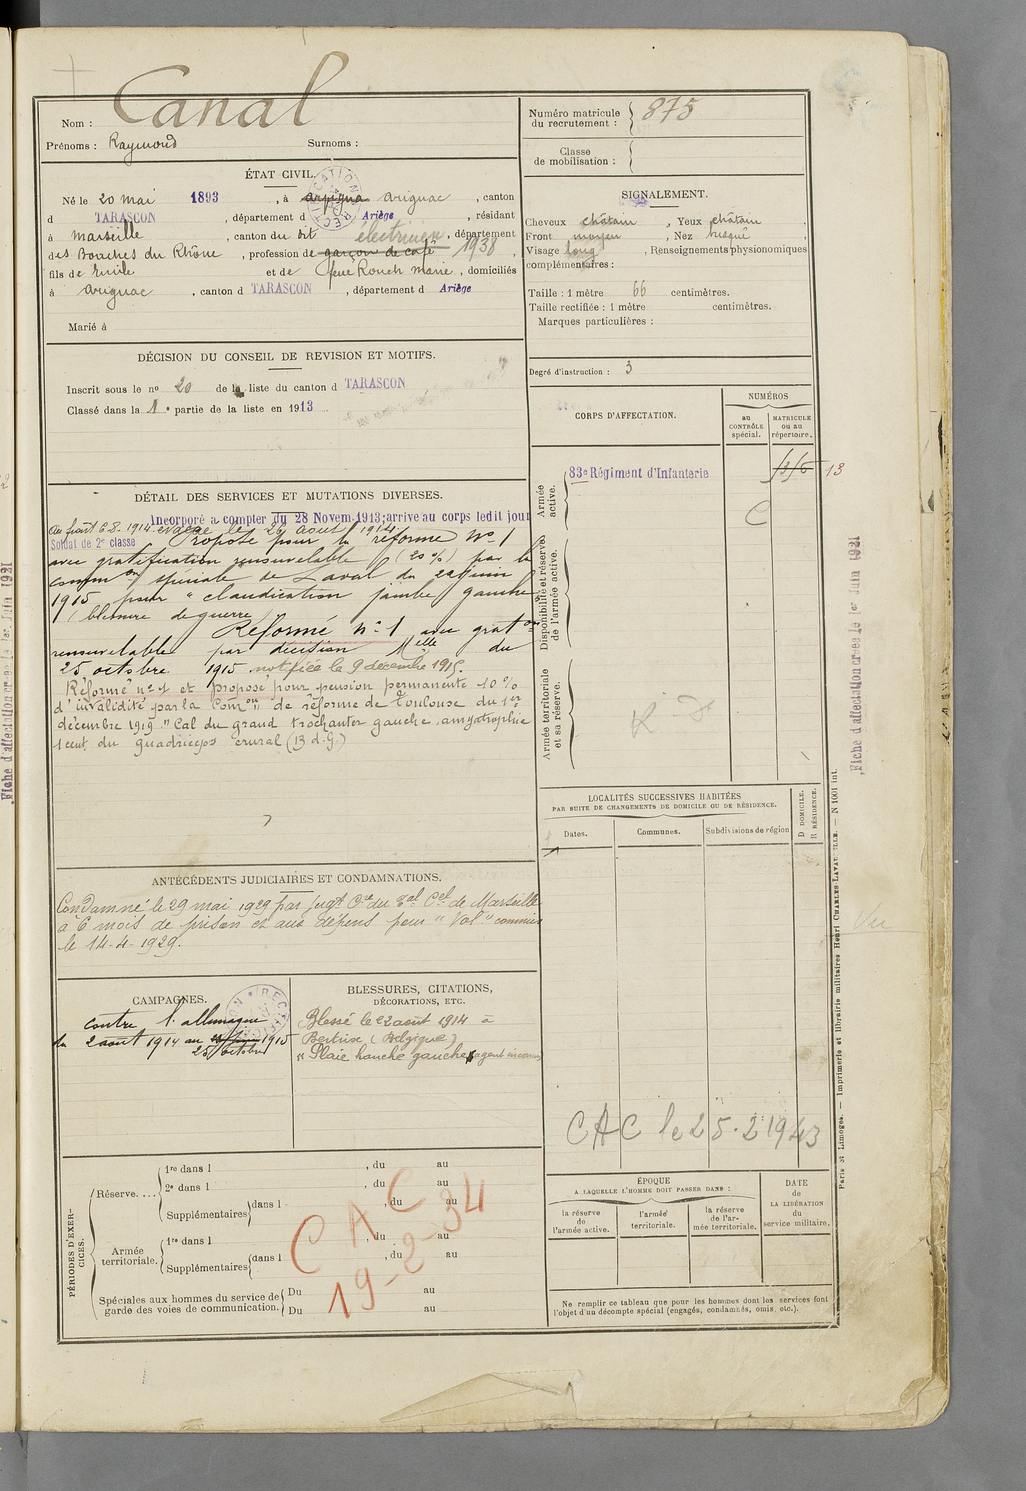 Canal
Nom :
Prénoms : Raymond Surnoms :
Numéro matricule du recrutement : 875
Classe de mobilisation :
ÉTAT CIVIL.
Né le 20 mai 1893, à arignac, canton
d TARASCON, département d Ariège, résidant
à Marseille, canton du dit électricien, département
des Bouches du Rhône, profession de garçon de café 1938,
fils de Emile et de feue Rouch Marie, domiciliés
à arignac, canton d TARASCON, département d Ariège
Marié à
SIGNALEMENT.
Cheveux châtain, Yeux châtain,
Front moyen, Nez busqué,
Visage long, Renseignements physionomiques
complémentaires :
Taille : 1 mètre 66 centimètres.
Taille rectifiée : 1 mètre centimètres.
Marques particulières :
Degré d'instruction : 3
DÉCISION DU CONSEIL DE REVISION ET MOTIFS.
Inscrit sous le no 20 de la liste du canton d TARASCON
Classé dans la 1e partie de la liste en 1913
DÉTAIL DES SERVICES ET MUTATIONS DIVERSES.
Incorporé a compter du 28 Novem. 1913; arrive au corps ledit jour
Soldat de 2e classe
Proposé pour la réforme No 1
avec gratification renouvelable (20 %) par la
common spéciale de Laval du
1915 pour "claudication jambe gauche
(blessure de guerre
Réformé No 1 avec graton
renouvelable par décision Mélle du
25 octobre 1915 notifiée le 9 décembre 1915.
Réformé no 1 et proposé pour pension permanente 10 %
d'invalidité par la Comon de réforme de Toulouse du 1er
décembre 1919 "Cal du grand trochanter gauche, amyotrophie
1 cent du quadriceps crural (B d. G.)
CORPS D'AFFECTATION.
NUMÉROS
au CONTRÔLE spécial.
MATRICULE ou au répertoire.
Armée active.
83e Régiment d'Infanterie
13
C
Disponibilité et réserve de l'armée active.
Armée territoriale et sa réserve.
LOCALITÉS SUCCESSIVES HABITÉES
PAR SUITE DE CHANGEMENTS DE DOMICILE OU DE RÉSIDENCE.
Dates. Communes. Subdivisions de région
D DOMICILE.
R RÉSIDENCE.
ANTÉCÉDENTS JUDICIAIRES ET CONDAMNATIONS.
Condamné le 29 mai 1929 par jugt Cre du Bal Cel de Marseille
à 6 mois de prison et aux dépens pour "Vol" commis
le 14-4-1929.
CAMPAGNES.
contre l'allemagne
du 2 aout 1914 au 1915
25 octobre
BLESSURES, CITATIONS,
DÉCORATIONS, ETC.
Blessé le 22 août 1914 à
Bertrix (Belgique)
"Plaie hanche gauche
CAC le 25.2.1943
PÉRIODES D'EXERCICES.
Réserve....
1re dans l , du au
2e dans l , du au
Supplémentaires dans l , du au
Armée territoriale.
1re dans l , du au
Supplémentaires dans l , du au
Spéciales aux hommes du service de garde des voies de communication.
Du au
Du au
CAC
19-2-34
ÉPOQUE
A LAQUELLE L'HOMME DOIT PASSER DANS :
la réserve de l'armée active.
l'armée territoriale.
la réserve de l'armée territoriale.
DATE de LA LIBÉRATION du service militaire.
Ne remplir ce tableau que pour les hommes dont les services font
l'objet d'un décompte spécial (engagés, condamnés, omis, etc.).
Fiche d'affectation créée le 1er Juin 1921
Fiche d'affectation créée le 1er Juin 1921